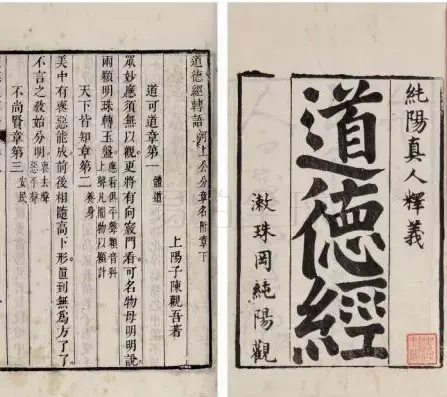 純陽真人釋義
道德經
漱珠岡純陽觀
道德經轉語 河上公分章名附章下
上陽子陳觀吾著
道可道章第一 體道
衆妙應須無以觀更將有向竅門看可名物母明明說
兩顆明珠轉玉盤
天下皆知章第二 養身
美中有喪惡能成前後相隨高下形直到無爲方了了
不言之教始分明 喪去聲惡平聲
不尚賢章第三 安民